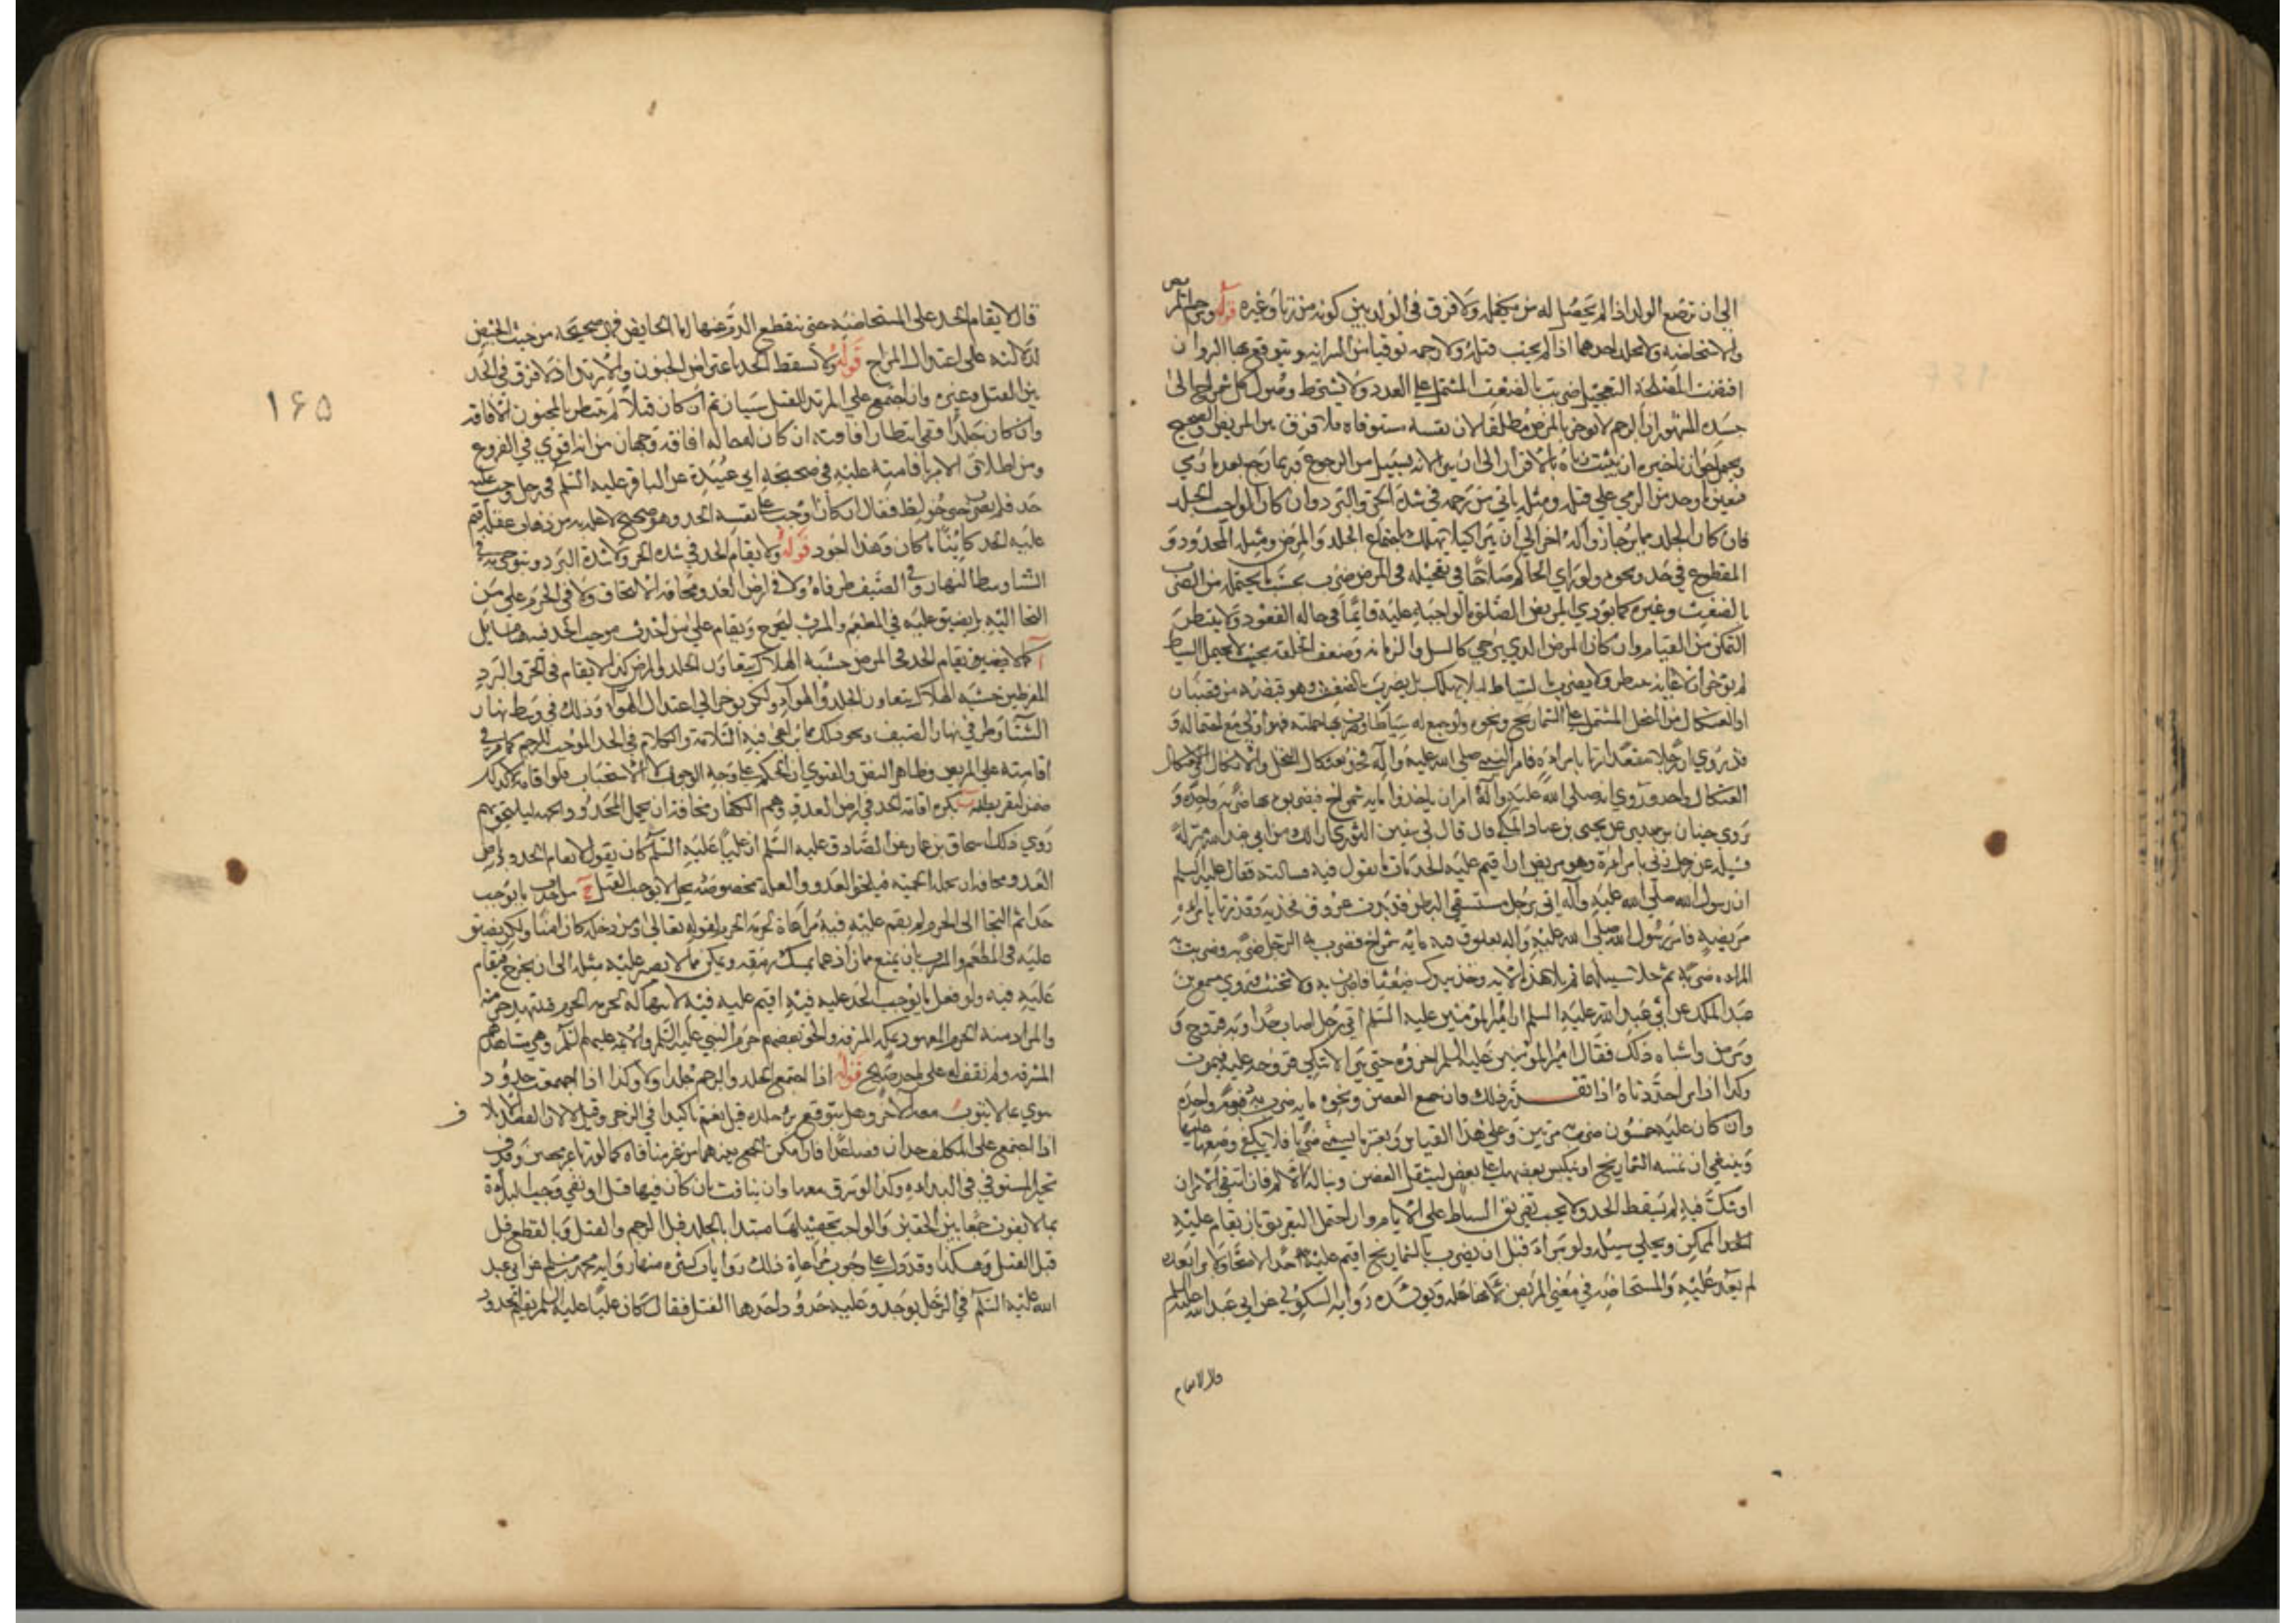 الى ان ترضع الولد اذا لم يحصل له من يكفله ولا فرق في الولد بين كونه من زنا وغيره قوله ويرجم المريض
والمستحاضة ولا يجلد احدهما اذا لم يجب قتله ولا رجمه توقيا من السراية ويتوقع بهما البرؤ وان
اقتضت المصلحة التعجيل ضرب بالضغث المشتمل على العدد ولا يشترط وصول كل شمراخ الى
جسده المشهور ان الرجم لا يؤخر بالمرض مطلقا لان نفسه مستوفاة فلا فرق بين المريض والصحيح
ويحتمل جواز تاخيره ان ثبت زناه بالاقرار الى ان يبرأ لانه بسبيل من الرجوع فربما رجع بعد ما رمي
فيعين ما وجد من الرمي على قتله ومثله ياتي في رجمه في شدة الحر والبرد وان كان الواجب الجلد
فان كان الجلد مما يرجا زواله اخر الى ان يبرا كيلا يهلك باجتماع الجلد والمرض ومثله المحدود و
المقطوع في حد ونحوه ولو راي الحاكم صلاحا في تعجيله في المرض ضرب بحسب ما يحتمله من الضرب
بالضغث وغيره كما يؤدي المريض الصلوة الواجبة عليه قائما في حالة القعود ولا ينتظر
التمكن من القيام وان كان المرض الذي يرجي كالسل والزمانة وضعف الخلقة بحيث لا يحتمل السياط
لم يؤخر اذ لا غاية تنتظر ولا يضرب بالسياط ليلا يهلك بل يضرب بالضغث وهو قبضة من قضبان
او العثكال من النخل المشتمل على الشماريخ ونحوه ولو جمع له سياطا وضرب بها جملة فهو اولى مع احتماله و
قد روي ان رجلا مقعدا زنا بامراة فامر النبي صلى الله عليه وآله فجزو بعثكال النخل والاثكال
العثكال واحد وروي انه صلى الله عليه وآله امر ان ياخذوا مايه شمراخ فيضربوه بها ضربة واحدة و
روي حنان بن سدير عن يحيى بن عباد المكي قال قال لي سفين الثوري ارى لك من ابي عبد الله منزلة
فسله عن رجل زنى بامراة وهو مريض ان اقيم عليه الحد مات ما يقول فيه فسالته فقال عليه السلم
ان رسول الله صلى الله عليه وآله اتى برجل مستسقي البطن قد بدت عروق فخذيه وقد زنا بامراة
مريضة فامر رسول الله صلى الله عليه واله بعذق فيه مايه شمراخ فضرب به الرجل ضربة وضربت به
المراه ضربة ثم خلا سبيلهما ثم تلا هذه الاية وخذ بيدك ضغثا فاضرب به ولا تحنث وروي مسمع بن
عبد الملك عن ابي عبد الله عليه السلم ان امير المؤمنين عليه السلم اتي برجل اصاب حدا وبه قروح و
ومرض واشباه ذلك فقال امير المؤمنين عليه السلم اخروه حتى تبرا لا تنكي قروحه عليه فيموت
وكذا اذا برا حددناه اذا تقرر ذلك فان جمع الغصن ونحوه مايه ضرب به ضربة واحدة
وان كان عليه خمسون ضرب مرتين وعلى هذا القياس ويعتبر ما يسمى ضربا فلا يكفي وضعها عليه
وينبغي ان تمسه الشماريخ او يكبس بعضها على بعض ليثقل الغصن ويناله الالم فان انتفى الامران
او شك فيه لم يسقط الحد ولا يجب تفريق السياط على الايام وان احتمل التفريق بل يقام عليه
الحد الممكن ويخلي سبيله ولو برا قبل ان يضرب بالشماريخ اقيم عليه حد الاصحاء وان برا بعده
لم يعد عليه والمستحاضة في معنى المريض ويؤيده رواية السكوني عن ابي عبد الله عليه السلم
قال لا يقام
قال لا يقام الحد على المستحاضة حتى ينقطع الدم عنها اما الحايض فهي صحيحة من حيث الحيض
لدلالته على اعتدال المزاج قوله ولا تسقط الحد باعتراض الجنون والارتداد لا فرق في الحد
بين القتل وغيره وان اجتمع على المرتد للقتل سببان ثم ان كان قتلا لم ينتظر بالمجنون الافاقة
وان كان جلدا ففي انتظار افاقته ان كان له حالة افاقة وجهان من انه اقوي في الفروع
ومن اطلاق الامر باقامته عليه في صحيحة ابي عبيدة عن الباقر عليه السلم في رجل وجب عليه
حد فلم يضرب حتى خولط فقال ان كان اوجب على نفسه الحد وهو صحيح لا علة به من ذهاب عقله اقيم
عليه الحد كاينا ما كان وهذا اجود قوله ولا يقام الحد في شدة الحر ولا شدة البرد ويتوخى به في
الشتا وسط النهار وفي الصيف طرفاه ولا في ارض العدو مخافة الالتحاق ولا في الحرم على من
التجا اليه بل يضيق عليه في المطعم والمشرب ليخرج ويقام على من احدث موجب الحد فيه هنا مسائل
آ كما لا يقام الحد في المرض خشية الهلاك بتعاون الجلد والمرض كذا لا يقام في الحر والبرد
المفرطين خشية الهلاك بتعاون الجلد والهواء ولكن يؤخر الى اعتدال الهواء وذلك في وسط نهار
الشتا وطرفي نهار الصيف ونحو ذلك مما يراعى فيه السلامة والكلام في الحد الموجب للرجم كما مر في
اقامته على المريض وظاهر النص والفتوي ان الحكم على وجه الوجوب لا الاستحباب فلو اقامه كذلك
ضمن لتفريطه ب يكره اقامة الحد في ارض العدو وهم الكفار مخافة ان يحمل المحدود الحمية ليلحق بهم
روي ذلك اسحاق بن عمار عن الصادق عليه السلم ان عليا عليه السلم كان يقول لا تقام الحدود بارض
العدو مخافة ان تحمله الحمية فيلحق بالعدو والعلة مخصوصة بحد لا يوجب القتل ج من احدث ما يوجب
حدا ثم التجا الى الحرم لم يقم عليه فيه مراعاة لحرمة الحرم لقوله تعالى ومن دخله كان امنا ولكن يضيق
عليه في المطعم والمشرب بان يمنع مما زاد عما يمسك رمقه ويمكن مما لا يصبر عليه مثله الى ان يخرج فيقام
عليه فيه ولو فعل ما يوجب الحد عليه فيه اقيم عليه فيه لانتهاكه حرمة الحرم فلتهدر حرمته
والمراد منه الحرم المعهود بمكة المشرفة والحق بعضهم حرم النبي عليه السلم والائمة عليهم السلم وهي مشاهدهم
المشرفة ولم نقف له على ماخذ صالح قوله اذا اجتمع الجلد والرجم جلد اولا وكذا اذا اجتمعت حدود
بما لا يفوت معه الاخر وهل يتوقع برء جلده قيل نعم تاكيدا في الزجر وقيل لا لان القصد الاتلاف
اذا اجتمع على المكلف حدان فصاعدا فان امكن الجمع بينهما من غير منافاة كما لو زنا غير محصن وقذف
تخير المستوفي في البداءة وكذا لو سرق معهما وان تنافت بان كان فيها قتل او نفي وجب البداءة
بما لا يفوت جمعا بين الحقين والواجب تحصيلهما مبتدا بالجلد قبل الرجم والقتل وبالقطع قبل
قبل القتل وهكذا وقد دل على وجوب مراعاة ذلك روايات كثيرة منها رواية محمد بن مسلم عن ابي عبد
الله عليه السلم في الرجل يوجد وعليه حدود احدها القتل فقال كان عليا عليه السلم يقيم الحدود
۱۶۵